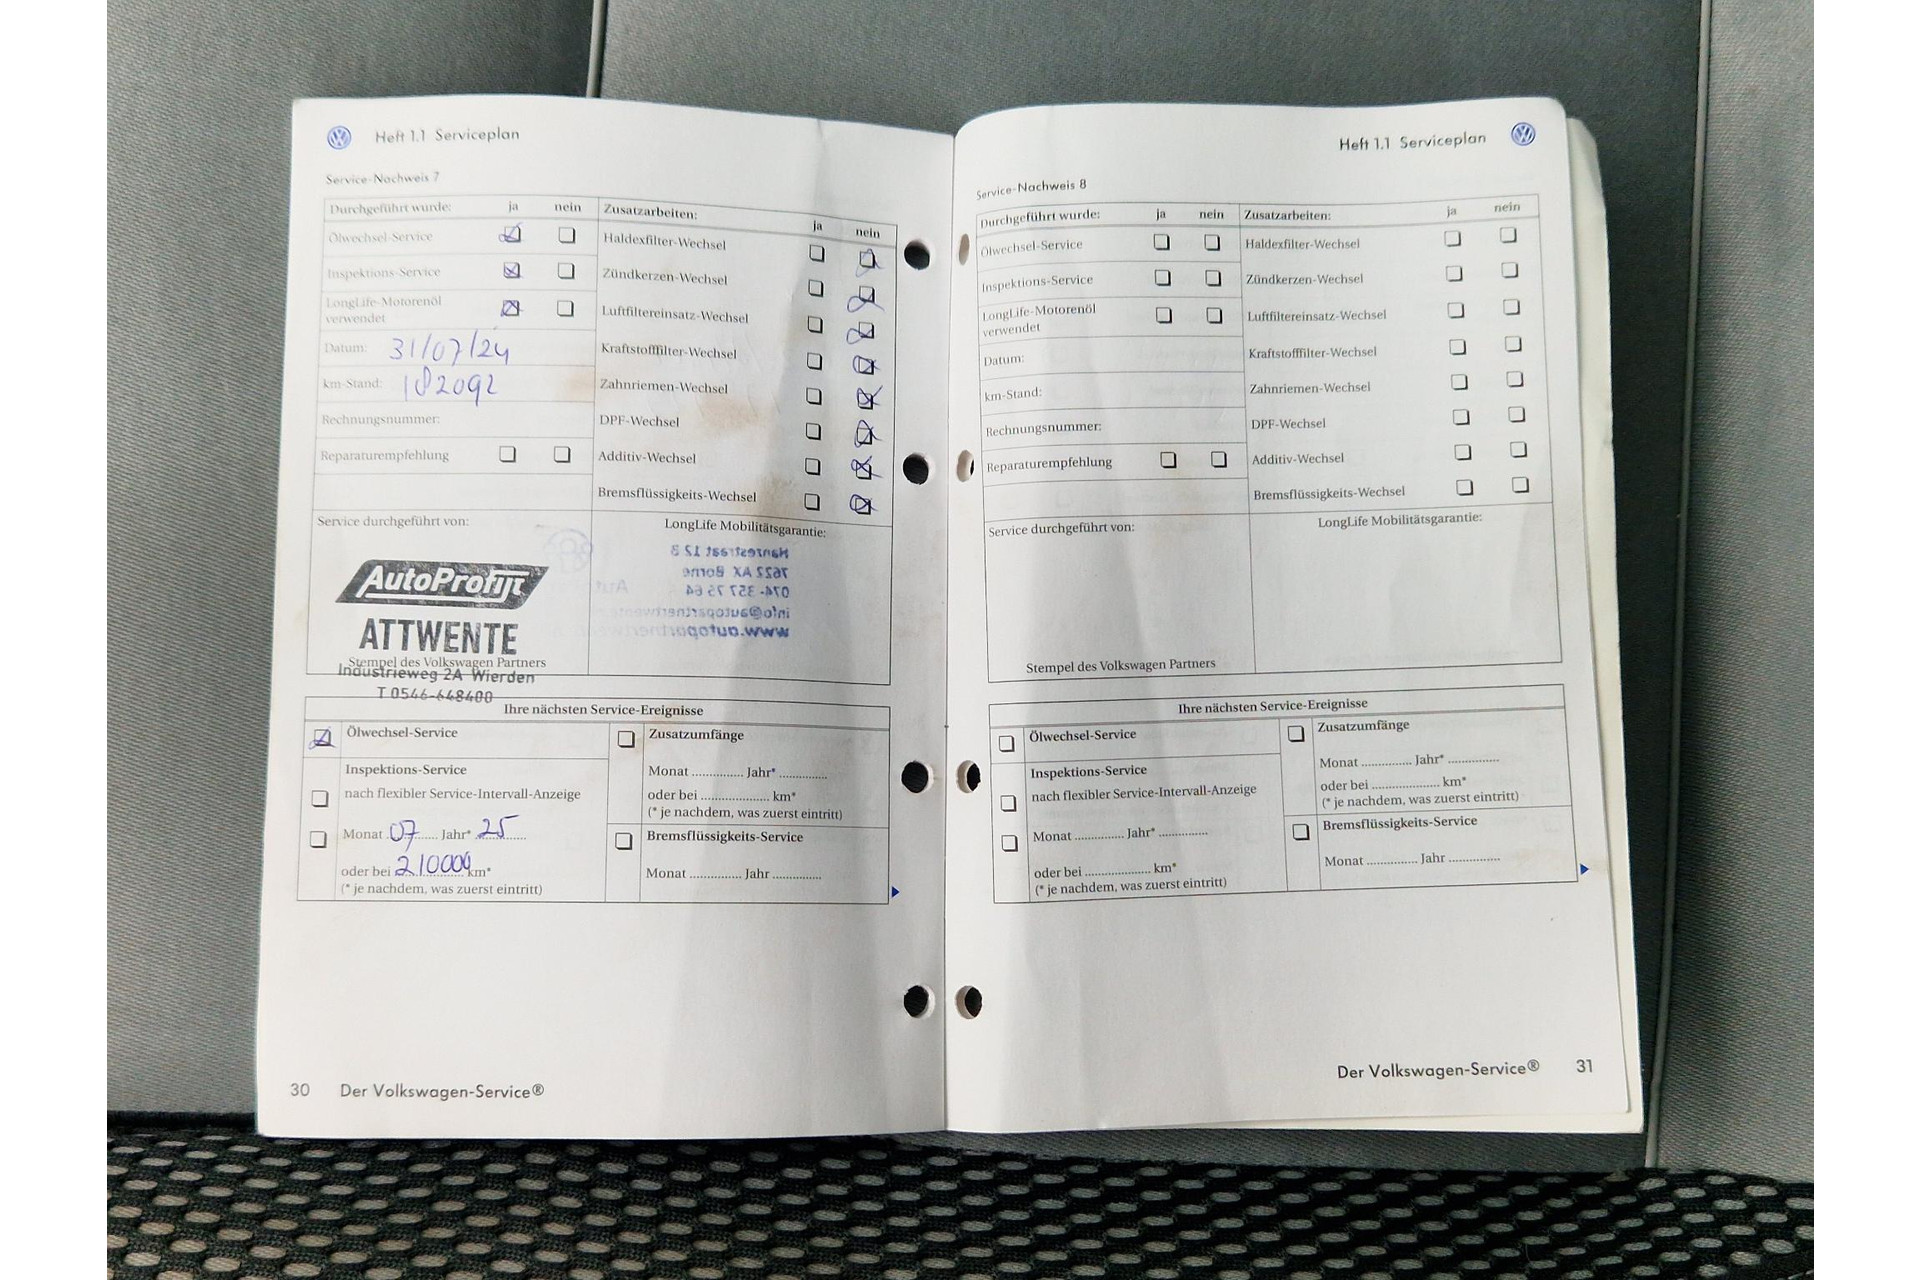 Heft 1.1 Serviceplan
Service-Nachweis 7
Durchgeführt wurde: ja nein
Ölwechsel-Service
Inspektions-Service
LongLife-Motorenöl
verwendet
Datum: 31/07/24
km-Stand: 182092
Rechnungsnummer:
Reparaturempfehlung
Zusatzarbeiten: ja nein
Haldexfilter-Wechsel
Zündkerzen-Wechsel
Luftfiltereinsatz-Wechsel
Kraftstofffilter-Wechsel
Zahnriemen-Wechsel
DPF-Wechsel
Additiv-Wechsel
Bremsflüssigkeits-Wechsel
Service durchgeführt von:
AutoProfijt
ATTWENTE
Stempel des Volkswagen Partners
Industrieweg 2A Wierden
T 0546-648400
LongLife Mobilitätsgarantie:
Hanzestraat 12 B
7622 AX Borne
074- 357 75 64
Ihre nächsten Service-Ereignisse
Ölwechsel-Service
Inspektions-Service
nach flexibler Service-Intervall-Anzeige
Monat 07 Jahr* 25
oder bei 210000 km*
(* je nachdem, was zuerst eintritt)
Zusatzumfänge
Monat ............... Jahr* ..............
oder bei .................... km*
(* je nachdem, was zuerst eintritt)
Bremsflüssigkeits-Service
Monat ............... Jahr ..............
30 Der Volkswagen-Service®
Heft 1.1 Serviceplan
Service-Nachweis 8
Durchgeführt wurde: ja nein
Ölwechsel-Service
Inspektions-Service
LongLife-Motorenöl
verwendet
Datum:
km-Stand:
Rechnungsnummer:
Reparaturempfehlung
Zusatzarbeiten: ja nein
Haldexfilter-Wechsel
Zündkerzen-Wechsel
Luftfiltereinsatz-Wechsel
Kraftstofffilter-Wechsel
Zahnriemen-Wechsel
DPF-Wechsel
Additiv-Wechsel
Bremsflüssigkeits-Wechsel
Service durchgeführt von:
Stempel des Volkswagen Partners
LongLife Mobilitätsgarantie:
Ihre nächsten Service-Ereignisse
Ölwechsel-Service
Inspektions-Service
nach flexibler Service-Intervall-Anzeige
Monat ............... Jahr* ..............
oder bei .................... km*
(* je nachdem, was zuerst eintritt)
Zusatzumfänge
Monat ............... Jahr* ..............
oder bei .................... km*
(* je nachdem, was zuerst eintritt)
Bremsflüssigkeits-Service
Monat ............... Jahr ..............
Der Volkswagen-Service® 31